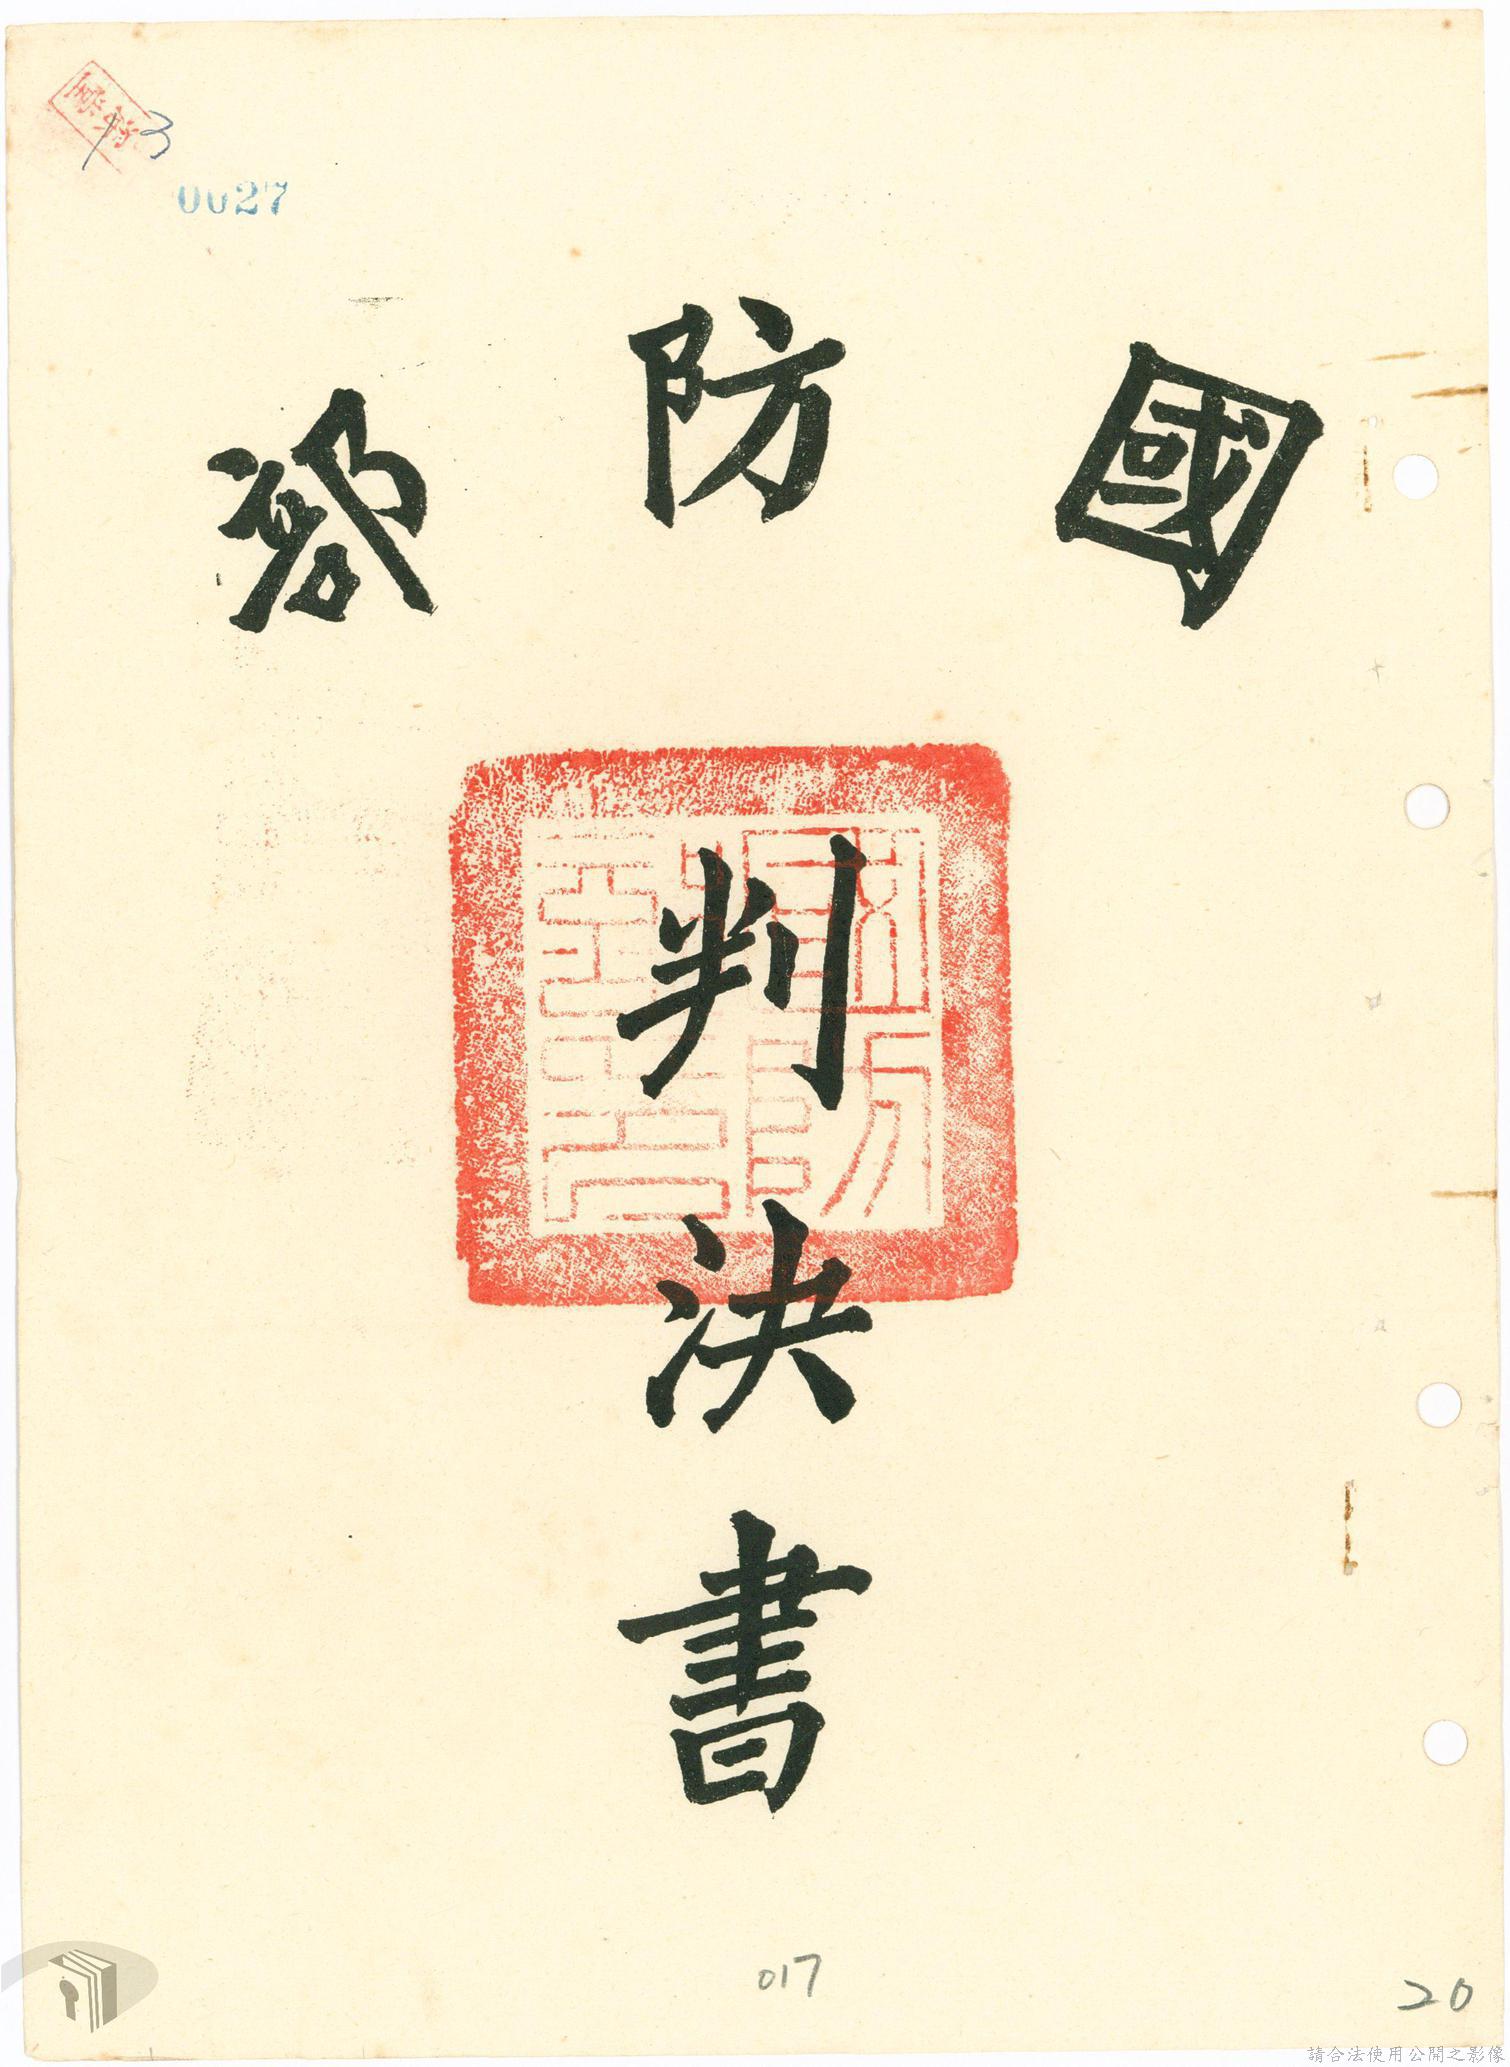 13
0027
國防部
判決書
017
20
請合法使用公開之影像